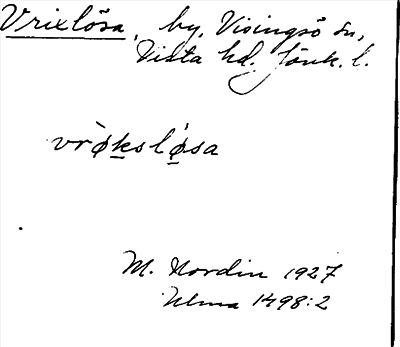 Vrixlösa, by, Visingsö sn,
Vista hd. Jönk. l.
vrø̀ḵslǿ̱sa
M. Nordin 1927
Ulma 1498:2